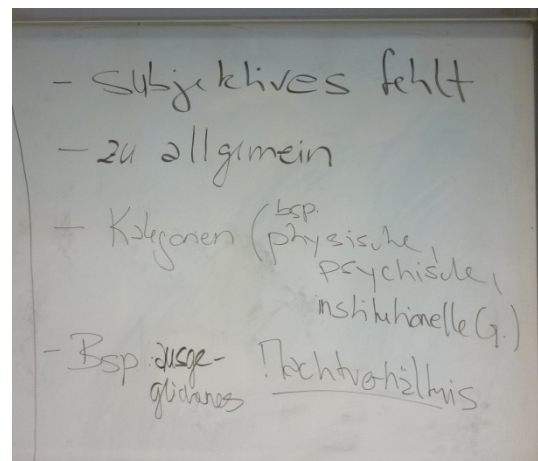 - subjektives fehlt
- zu allgemein
- Kategorien (bsp. physische,
psychische,
institutionelle G.)
- Bsp. ausge- Machtverhältnis
glichenes